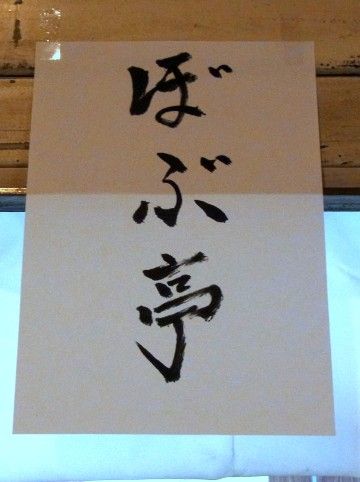 ぼぶ亭